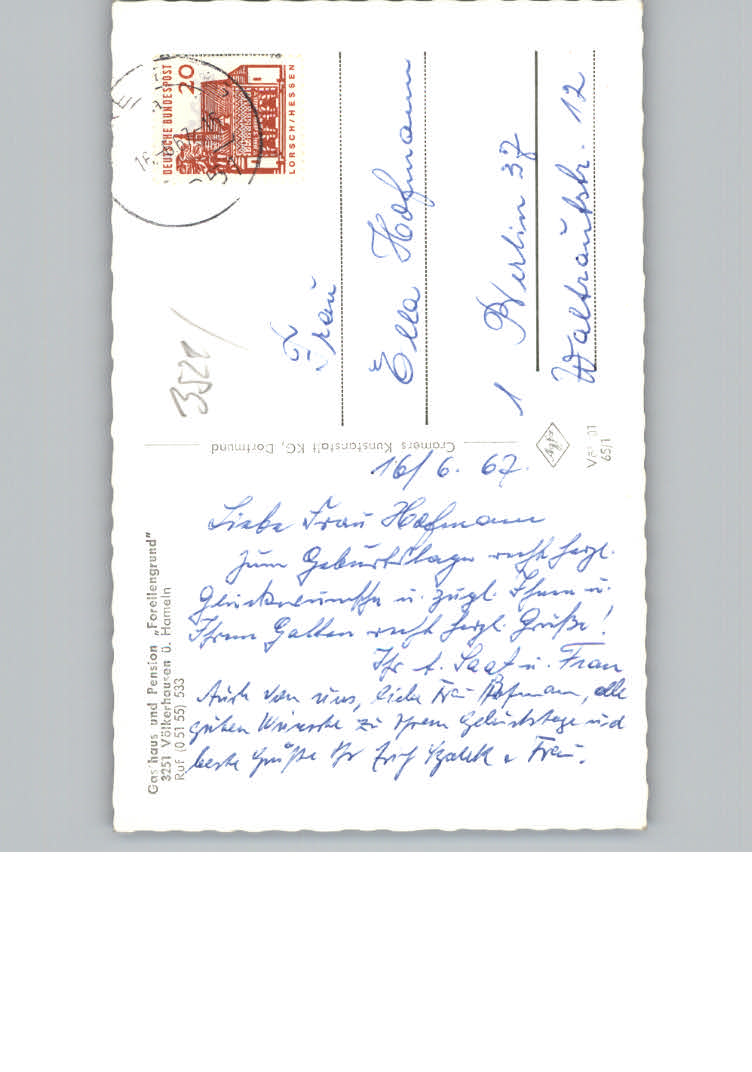 Gasthaus und Pension „Forellengrund"
3251 Völkerhausen ü. Hameln
Ruf (0 51 55) 533
16/6. 67.
Liebe Frau Hofmann
zum Geburtstage recht herzl.
Glückwünsche u. zugl. Ihnen u.
Ihrem Gatten recht herzl. Grüße!
Ihr u. Frau
Auch von uns, liebe Frau Hofmann, alle
guten Wünsche zu Ihrem Geburtstage und
beste Grüße Ihr Erich u Frau.
Cramers Kunstanstalt KG, Dortmund
3521
DEUTSCHE BUNDESPOST
20
LORSCH/HESSEN
Frau
Ella Hofmann
1 Berlin 37
Waltrautstr. 12
65/1